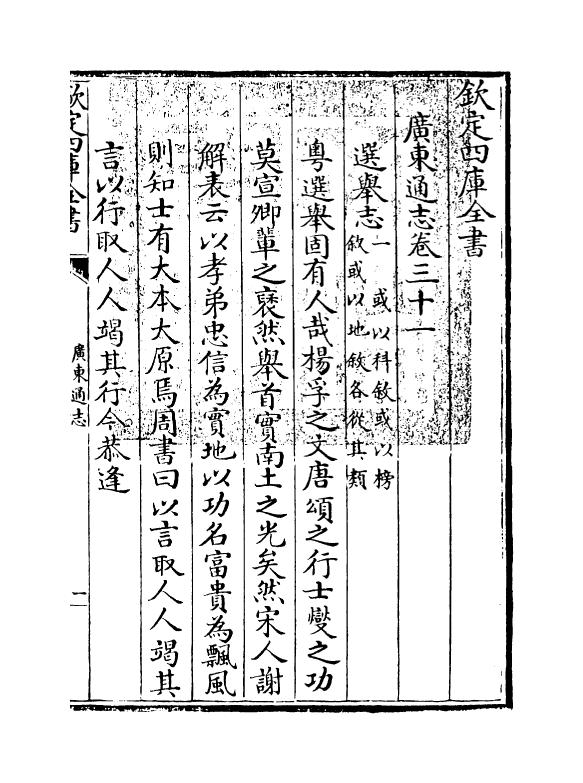 欽定四庫全書
廣東通志卷三十一
選舉志一 或以科敘或以榜敘或以地敘各從其類
粵選舉固有人哉楊孚之文唐頌之行士燮之功
莫宣卿輩之褎然舉首實南土之光矣然宋人謝
解表云以孝弟忠信為實地以功名富貴為飄風
則知士有大本大原焉周書曰以言取人人竭其
言以行取人人竭其行今恭逢
欽定四庫全書
廣東通志
二